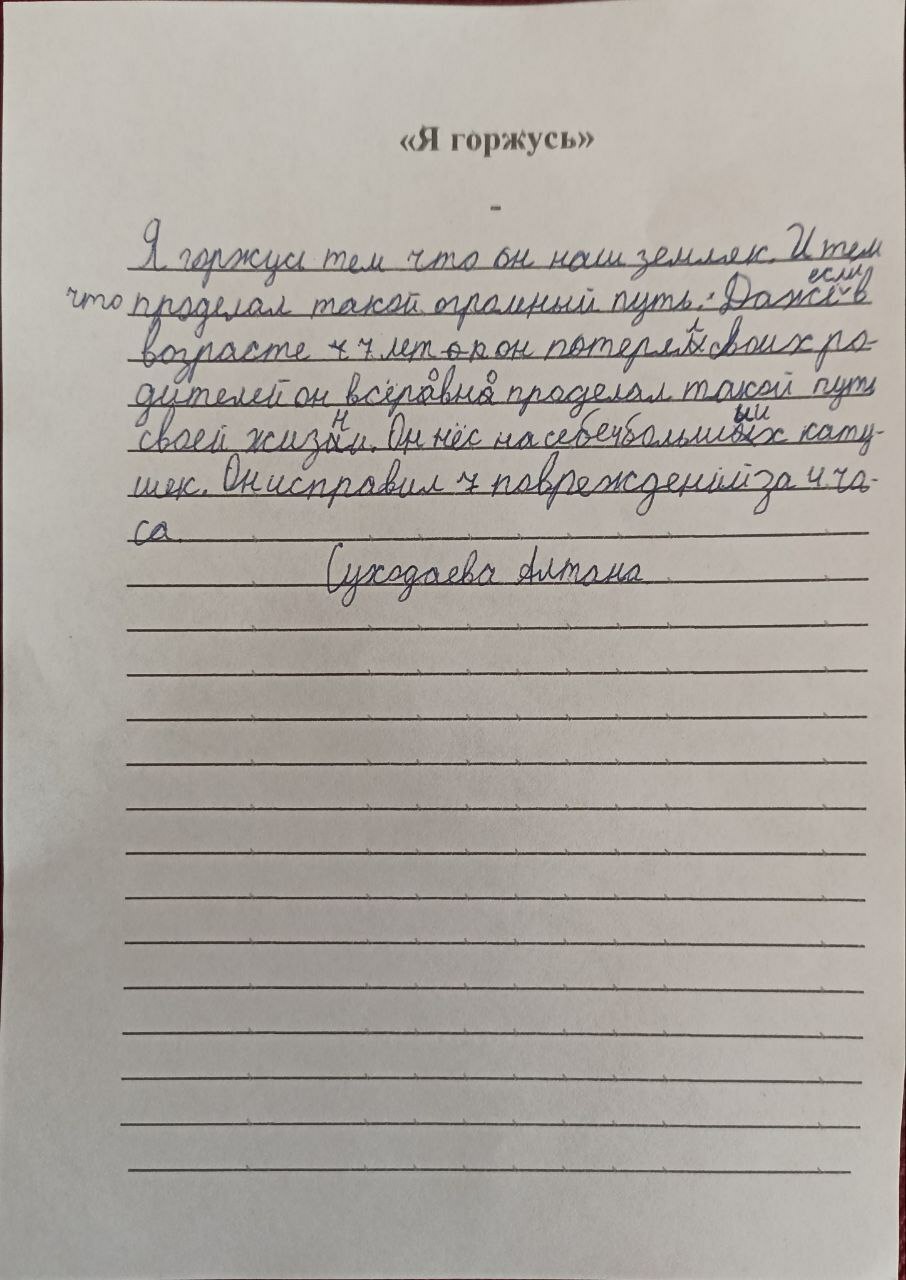 «Я горжусь»
-
Я горжусь тем что он наш земляк. И тем
что проделал такой огромный путь. Даже если в
возрасте 7 лет он потерял своих ро-
дителей он всёровно проделал такой путь
своей жизни. Он нёс на себе больших кату-
шек. Он исправил 7 повреждений за 4 ча-
са.
Суходаева Алтана